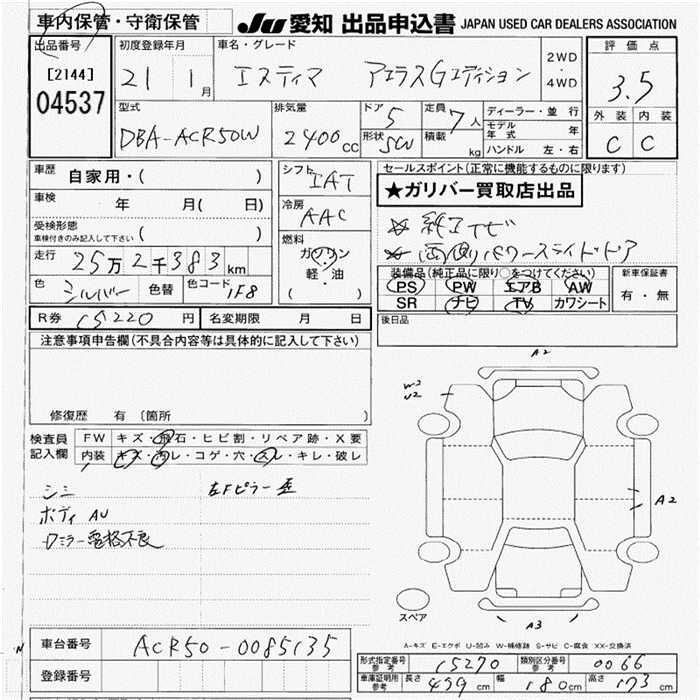 車内保管・守衛保管 JU 愛知 出品申込書 JAPAN USED CAR DEALERS ASSOCIATION
出品番号 初度登録年月 車名・グレード 評価点
[2144] 21 1月 エスティマ アエラスGエディション 2WD・4WD 3.5
04537
型式 排気量 ドア 5 定員 7人 ディーラー・並行 外装 内装
DBA-ACR50W 2400cc 形状 SW 積載 kg モデル年式 年 C C
ハンドル 左・右
車歴 自家用・( ) シフト IAT セールスポイント(正常に機能するものに限ります)
★ガリバー買取店出品
車検 年 月(日) 冷房 AAC
☆ 純正ナビ
受検形態 車検付きのみ記入して下さい ( )
☆ 両側パワースライドドア
走行 25万2千383km 燃料 ガソリン 軽・油 ( )
装備品(純正品に限り○をつけてください) 新車保証書
色 シルバー 色替 色コード 1F8 PS PW エアB AW 有・無
SR ナビ TV カワシート
R券 15220円 名変期限 月 日 後日品
注意事項申告欄(不具合内容等は具体的に記入して下さい)
A2
W2
U2
修復歴 有 (箇所 )
検査員記入欄 FW キズ・飛石・ヒビ割・リペア跡・X要
内装 キズ・汚レ・コゲ・穴・スレ・キレ・破レ
シミ 左Fピラー
ボディ AU
ワミラー電格不良
A2
スペア
A3
A-キズ E-エクボ U-凹み W-補修跡 S-サビ C-腐食 XX-交換済
車台番号 ACR50-0085135
登録番号
形式指定番号 参考 15270 類別区分番号 参考 0066
車庫証明用 参考 長さ 479cm 幅 180cm 高さ 173cm